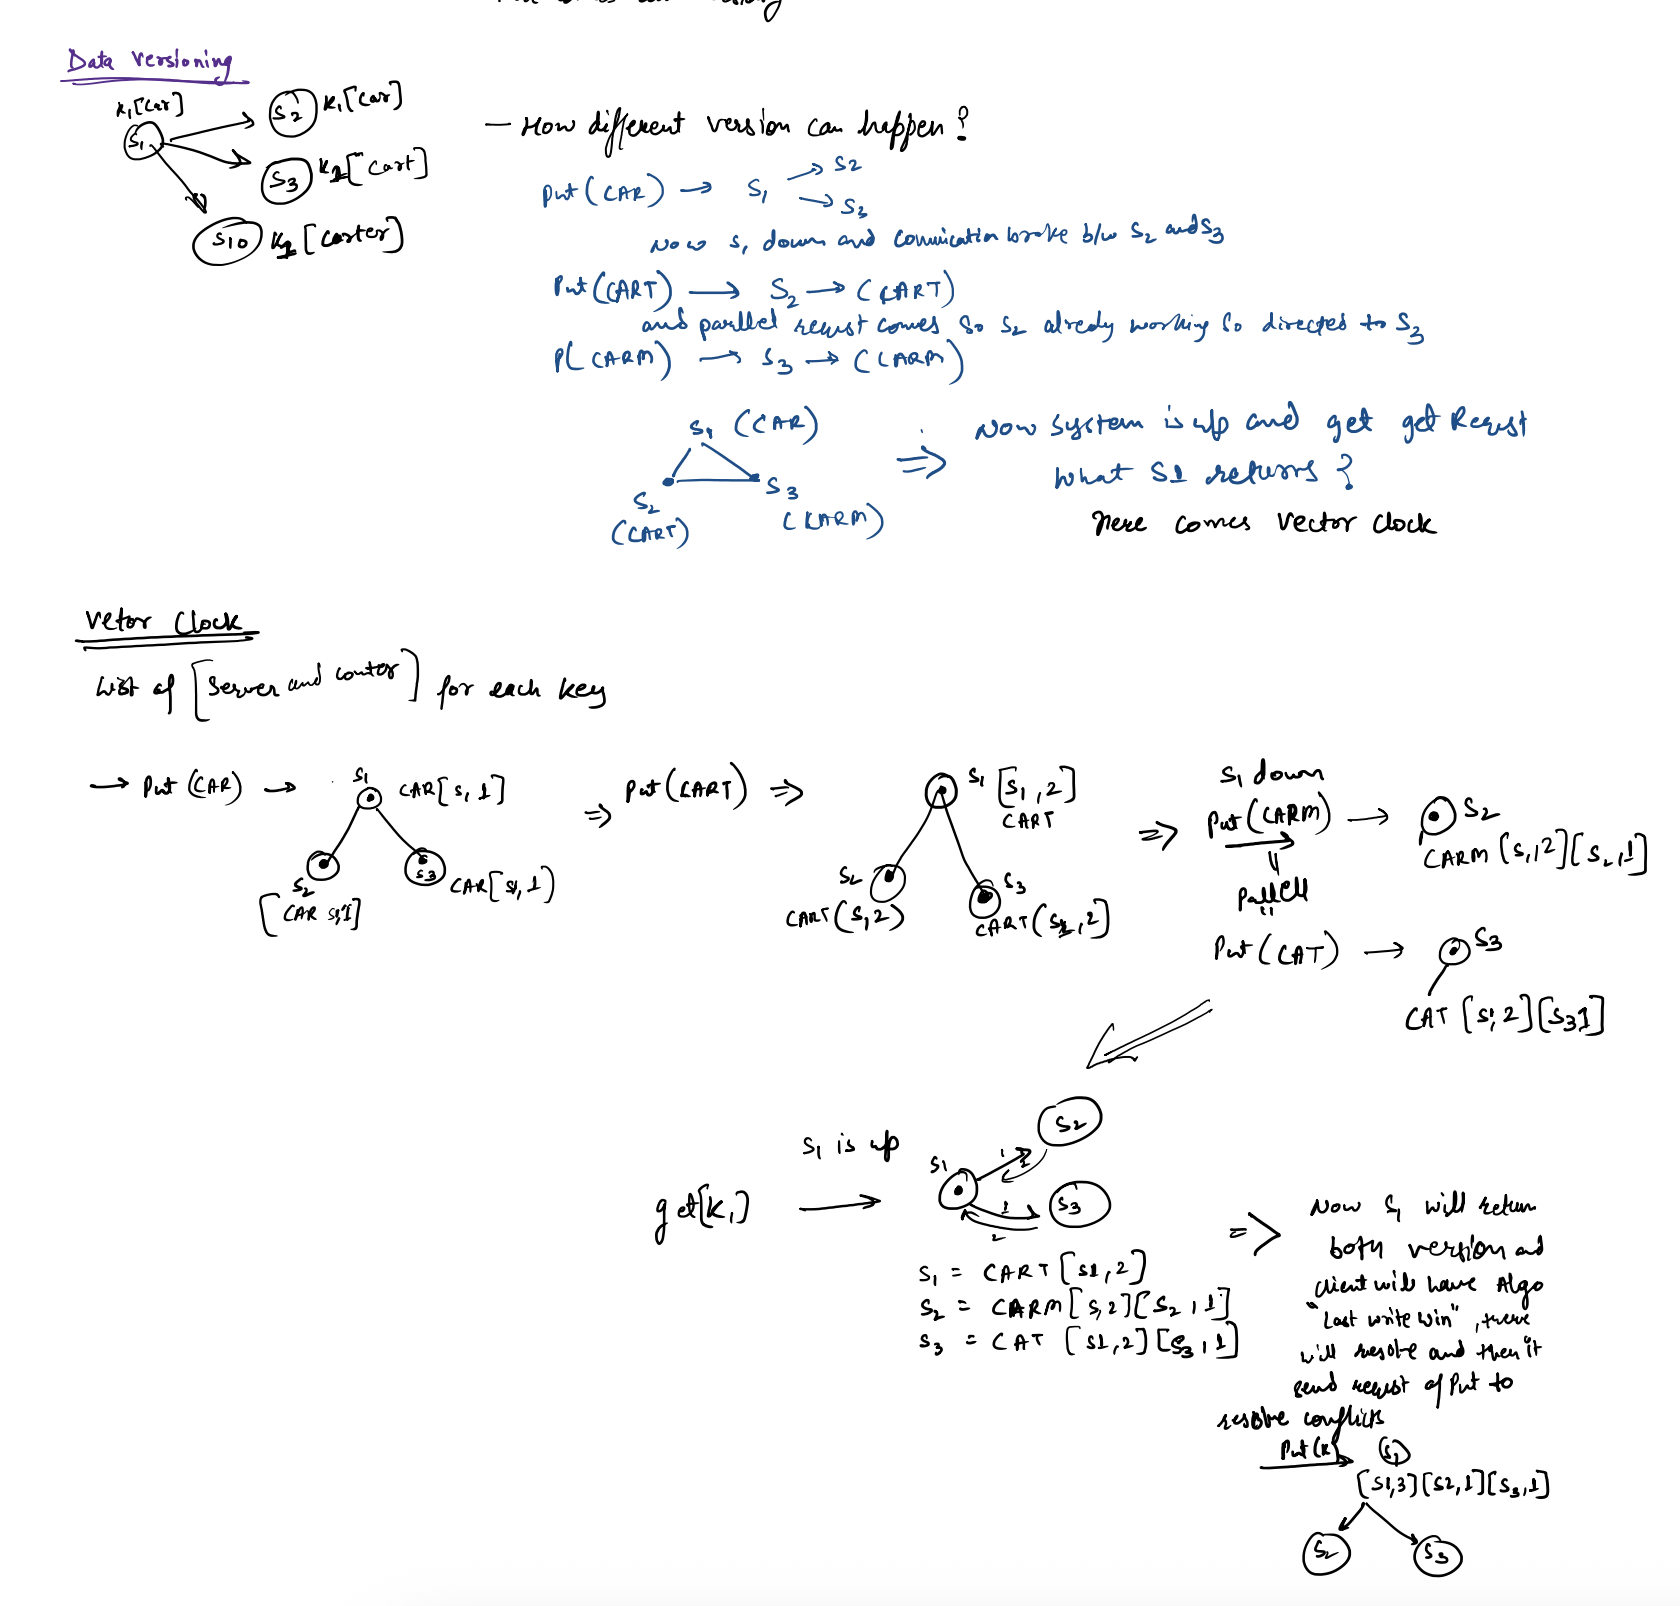 Data versioning
K1[Car]
S1
S2 K1[Car]
S3 K1[Cart]
S10 K1[Carter]
— How different version can happen?
Put (CAR) → S1 → S2
→ S3
Now S1 down and Comunication broke b/w S2 and S3
Put (CART) → S2 → (CART)
and parllel reqst comes so S2 alredy working so directed to S3
P( CARM) → S3 → (CARM)
S1 (CAR)
S2
(CART)
S3
(CARM)
⇒ Now system is up and get get Reqst
What S1 returns?
Here comes Vector Clock
Vetor Clock
List of [Server and conter] for each key
→ Put (CAR) →
S1 CAR[S1 1]
S2
[CAR S1,1]
S3 CAR[S1, 1)
⇒ Put (CART) ⇒
S1 [S1, 2]
CART
S2
CART(S1 2)
S3
CART(S1, 2]
⇒ S1 down
Put (CARM) → S2
CARM [S1,2][S2,1]
Pallell
Put (CAT) → S3
CAT [S1, 2][S3 1]
S1 is up
get[K1) →
S1
S2
S3
1
2
1
2
S1 = CART [S1, 2]
S2 = CARM [S1 2][S2, 1]
S3 = CAT [S1, 2][S3, 1]
⇒ Now S1 will return
both version and
client will have Algo
"Last write Win", there
will resolve and then it
send reqest of Put to
resolve conflicts
Put (K) S1
[S1,3][S2,1][S3,1]
S2 S3